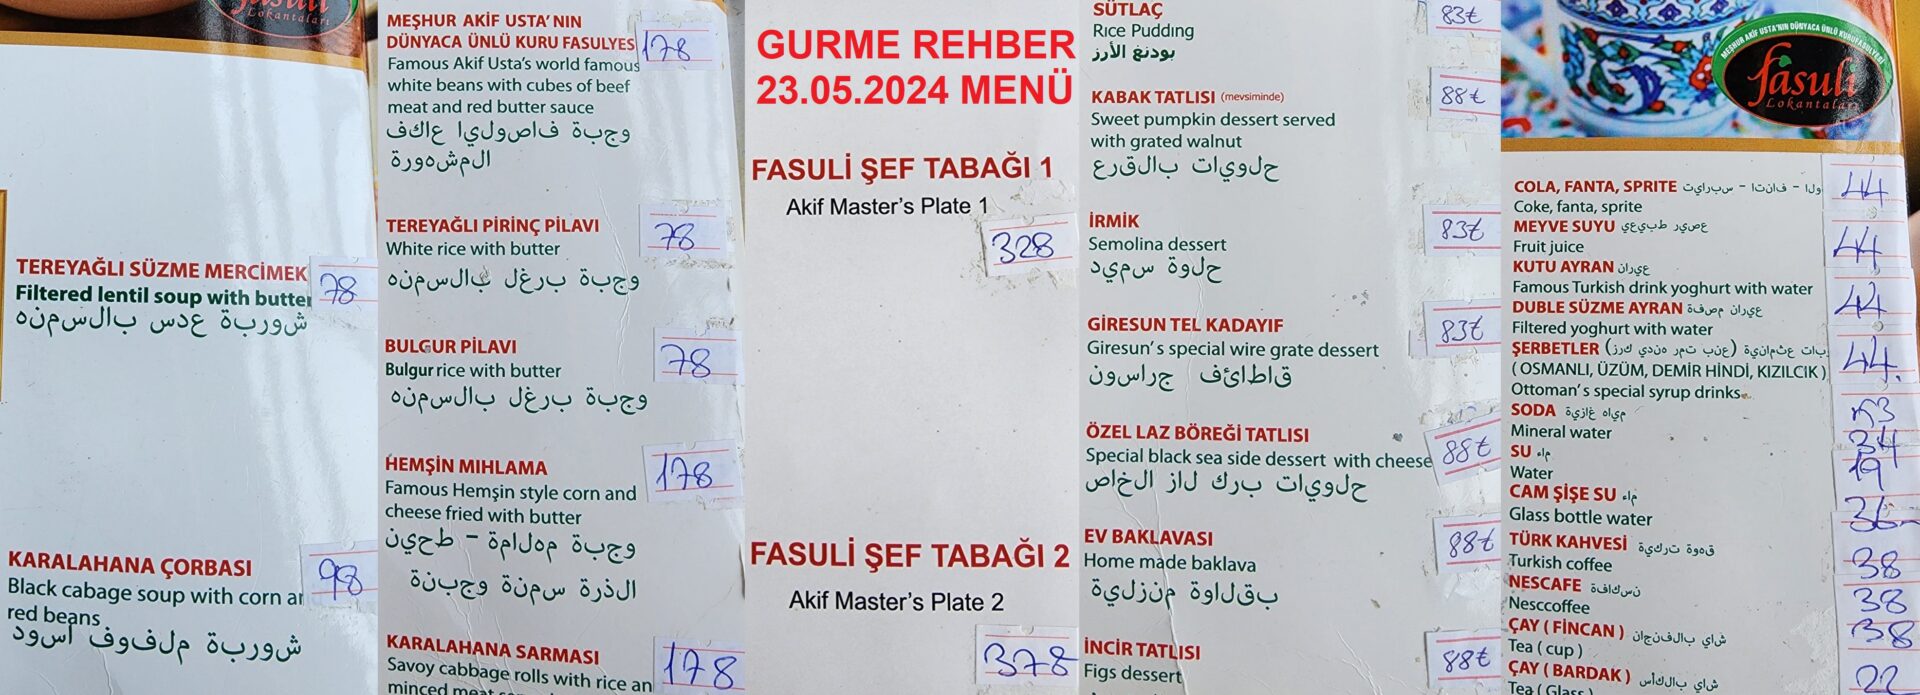 fasuli
Lokantaları
TEREYAĞLI SÜZME MERCİMEK 78
Filtered lentil soup with butter
شوربة عدس بالسمنه
KARALAHANA ÇORBASI 98
Black cabage soup with corn an
red beans
شوربة ملفوف اسود
MEŞHUR AKİF USTA'NIN
DÜNYACA ÜNLÜ KURU FASULYES 178
Famous Akif Usta's world famous
white beans with cubes of beef
meat and red butter sauce
وجبة فاصوليا عاكف
المشهورة
TEREYAĞLI PİRİNÇ PİLAVI 78
White rice with butter
وجبة برغل بالسمنه
BULGUR PİLAVI 78
Bulgur rice with butter
وجبة برغل بالسمنه
HEMŞİN MIHLAMA 178
Famous Hemşin style corn and
cheese fried with butter
وجبة مهلامة - طحين
الذرة سمنة وجبنة
KARALAHANA SARMASI 178
Savoy cabbage rolls with rice an
minced meat
GURME REHBER
23.05.2024 MENÜ
FASULİ ŞEF TABAĞI 1
Akif Master's Plate 1
328
FASULİ ŞEF TABAĞI 2
Akif Master's Plate 2
378
SÜTLAÇ 83₺
Rice Pudding
بودنغ الأرز
KABAK TATLISI (mevsiminde) 88₺
Sweet pumpkin dessert served
with grated walnut
حلويات بالقرع
İRMİK 83₺
Semolina dessert
حلوة سميد
GİRESUN TEL KADAYIF 83₺
Giresun's special wire grate dessert
قاطائف جراسون
ÖZEL LAZ BÖREĞİ TATLISI 88₺
Special black sea side dessert with cheese
حلويات برك لاز الخاص
EV BAKLAVASI 88₺
Home made baklava
بقلاوة منزلية
İNCİR TATLISI 88₺
Figs dessert
MEŞHUR AKİF USTA'NIN DÜNYACA ÜNLÜ KURUFASULYESİ
fasuli
Lokantaları
COLA, FANTA, SPRITE ولا - فانتا - سبرايت 44
Coke, fanta, sprite
MEYVE SUYU عصير طبيعي 44
Fruit juice
KUTU AYRAN عيران 44
Famous Turkish drink yoghurt with water
DUBLE SÜZME AYRAN عيران مصفة 44
Filtered yoghurt with water
ŞERBETLER 44
( OSMANLI, ÜZÜM, DEMİR HİNDİ, KIZILCIK )
Ottoman's special syrup drinks
SODA مياه غازية
Mineral water 34
SU ماء 19
Water
CAM ŞİŞE SU ماء 36
Glass bottle water
TÜRK KAHVESİ قهوة تركية 38
Turkish coffee
NESCAFE نسكافة 38
Nesccoffee
ÇAY ( FİNCAN ) شاي بالفنجان 38
Tea ( cup )
ÇAY ( BARDAK ) شاي بالكأس 22
Tea ( Glass )